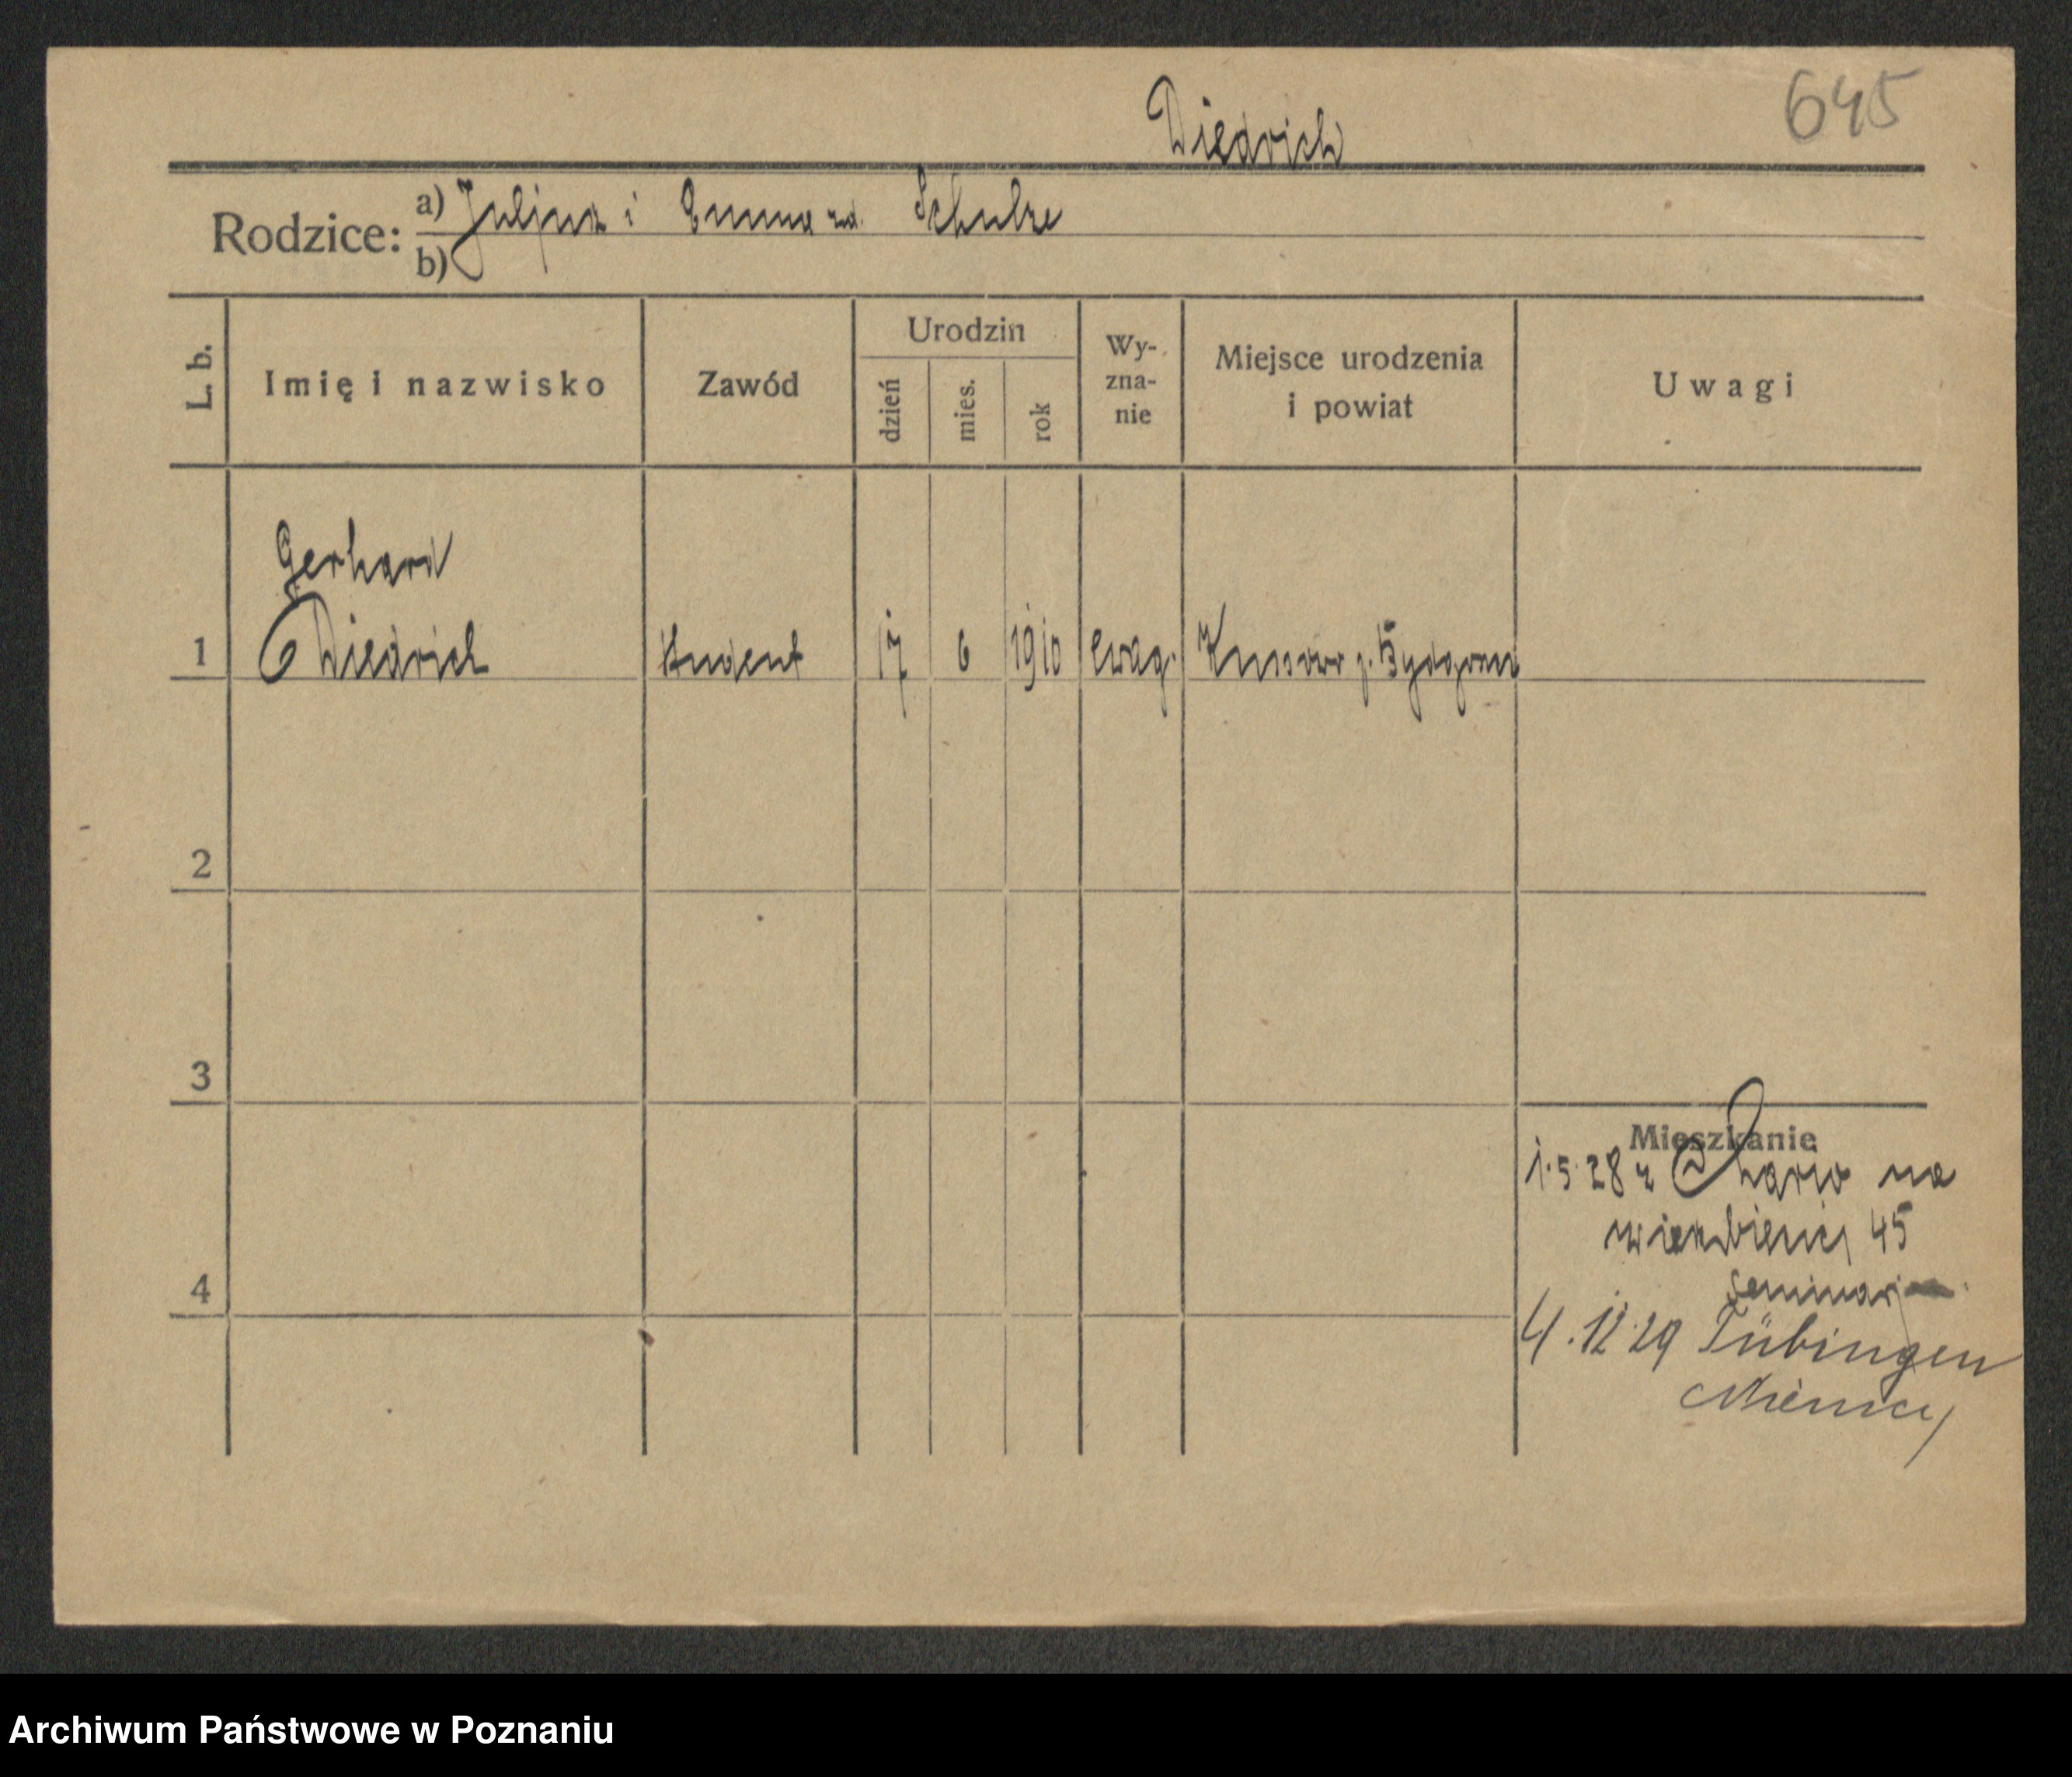 Diedrich
645
Rodzice: a) Juljusz i Emma zd. Schulze
b)
L. b.
Imię i nazwisko
Zawód
Urodzin
dzień
mies.
rok
Wy-
zna-
nie
Miejsce urodzenia
i powiat
Uwagi
Gerhard
1 Diedrich student 17 6 1910 ewag. p. Bydgoszcz
2
3
Mieszkanie
1.5.28 z na
45
seminarj
4
4.12.29 Tübingen
Niemcy
Archiwum Państwowe w Poznaniu